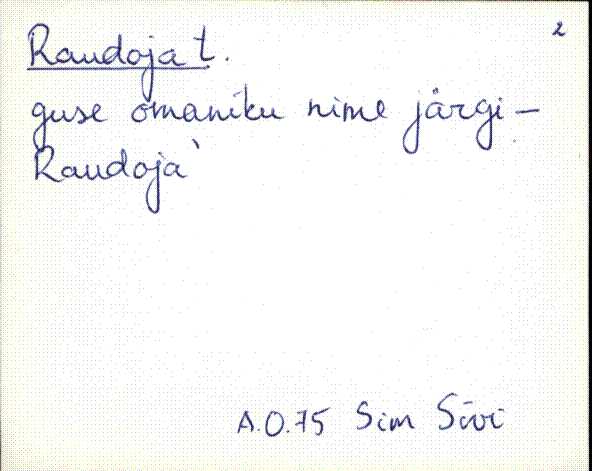 2
Raudoja t.
guse omaniku nime järgi –
Raudoja`
A.O.75 Sim Sivi